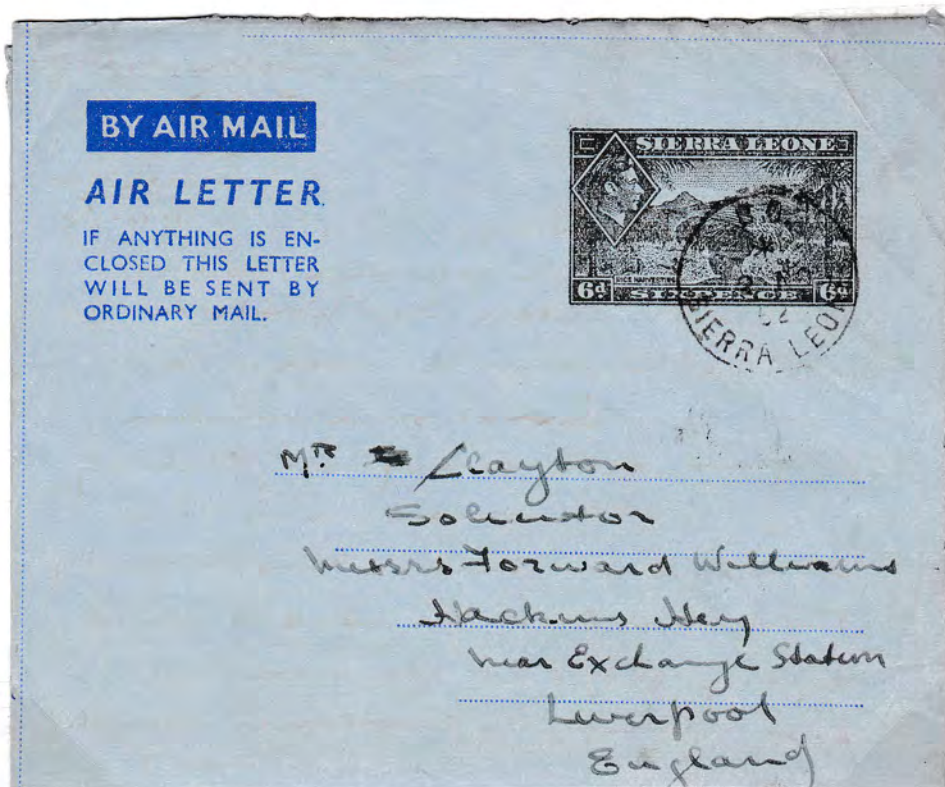 BY AIR MAIL
AIR LETTER.
IF ANYTHING IS EN-
CLOSED THIS LETTER
WILL BE SENT BY
ORDINARY MAIL.
SIERRA LEONE
RICE HARVESTING
6d SIXPENCE 6d
SIERRA LEONE
Mr Clayton
Solicitor
Messrs Forward Williams
Hackins Hey
near Exchange Station
Liverpool
England